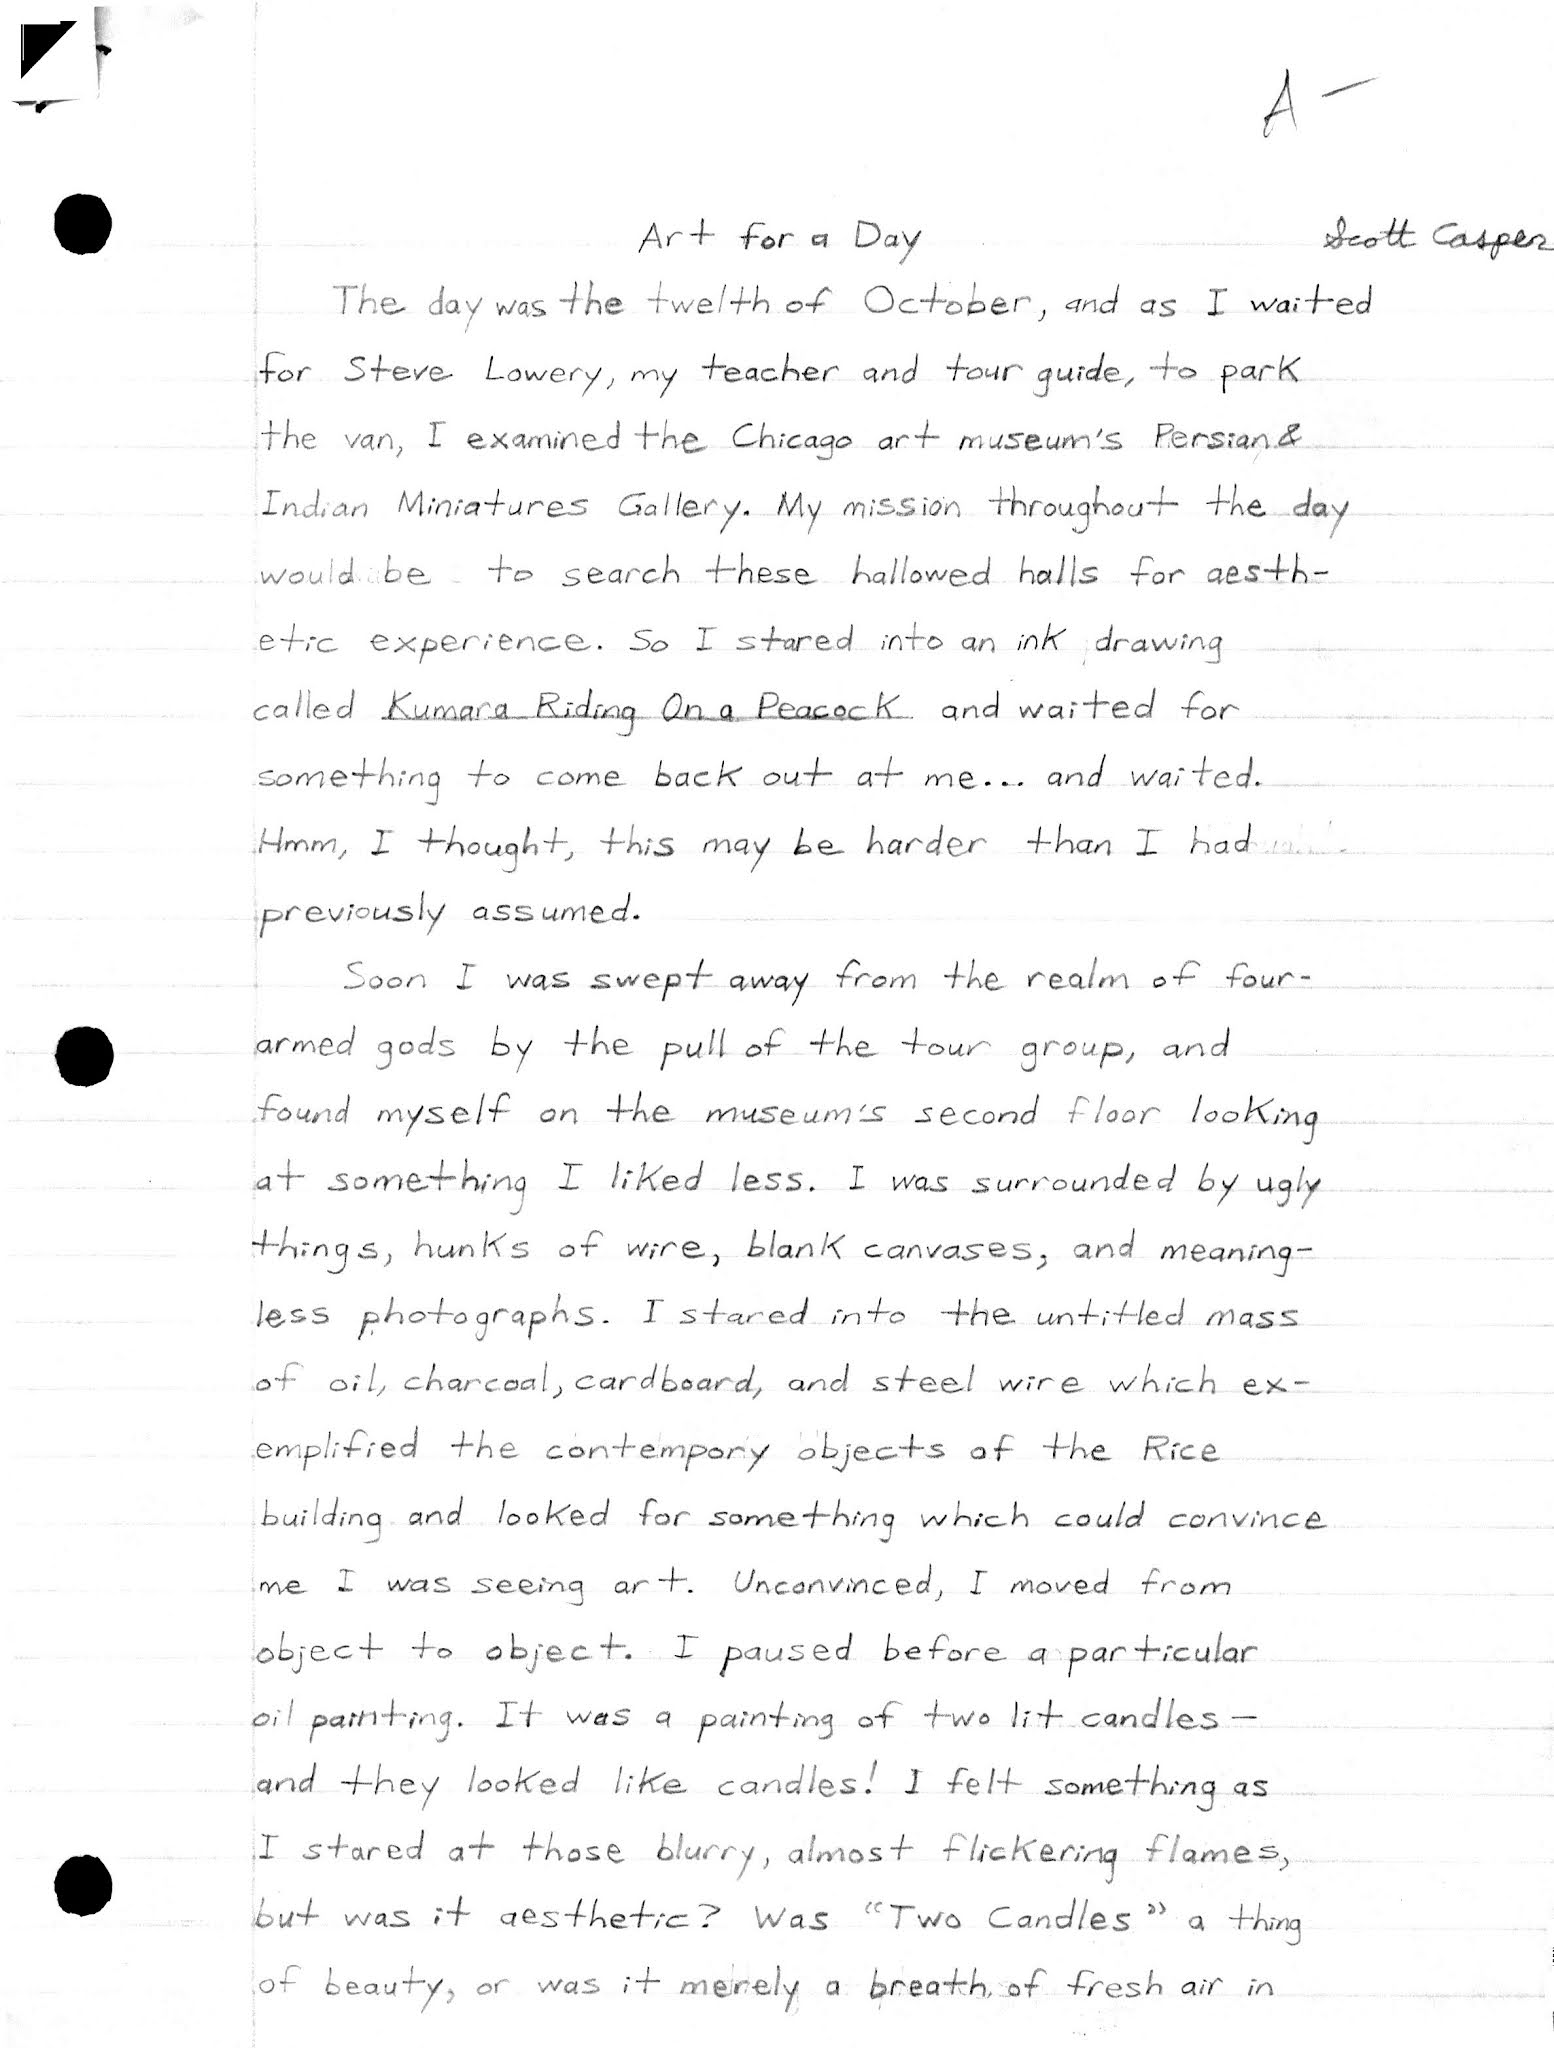 A-
Art for a Day Scott Casper
The day was the twelth of October, and as I waited
for Steve Lowery, my teacher and tour guide, to park
the van, I examined the Chicago art museum's Persian &
Indian Miniatures Gallery. My mission throughout the day
would be to search these hallowed halls for aesth-
etic experience. So I stared into an ink drawing
called Kumara Riding On a Peacock and waited for
something to come back out at me... and waited.
Hmm, I thought, this may be harder than I had
previously assumed.
Soon I was swept away from the realm of four-
armed gods by the pull of the tour group, and
found myself on the museum's second floor looking
at something I liked less. I was surrounded by ugly
things, hunks of wire, blank canvases, and meaning-
less photographs. I stared into the untitled mass
of oil, charcoal, cardboard, and steel wire which ex-
emplified the contempory objects of the Rice
building and looked for something which could convince
me I was seeing art. Unconvinced, I moved from
object to object. I paused before a particular
oil painting. It was a painting of two lit candles—
and they looked like candles! I felt something as
I stared at those blurry, almost flickering flames,
but was it aesthetic? Was "Two Candles" a thing
of beauty, or was it merely a breath of fresh air in